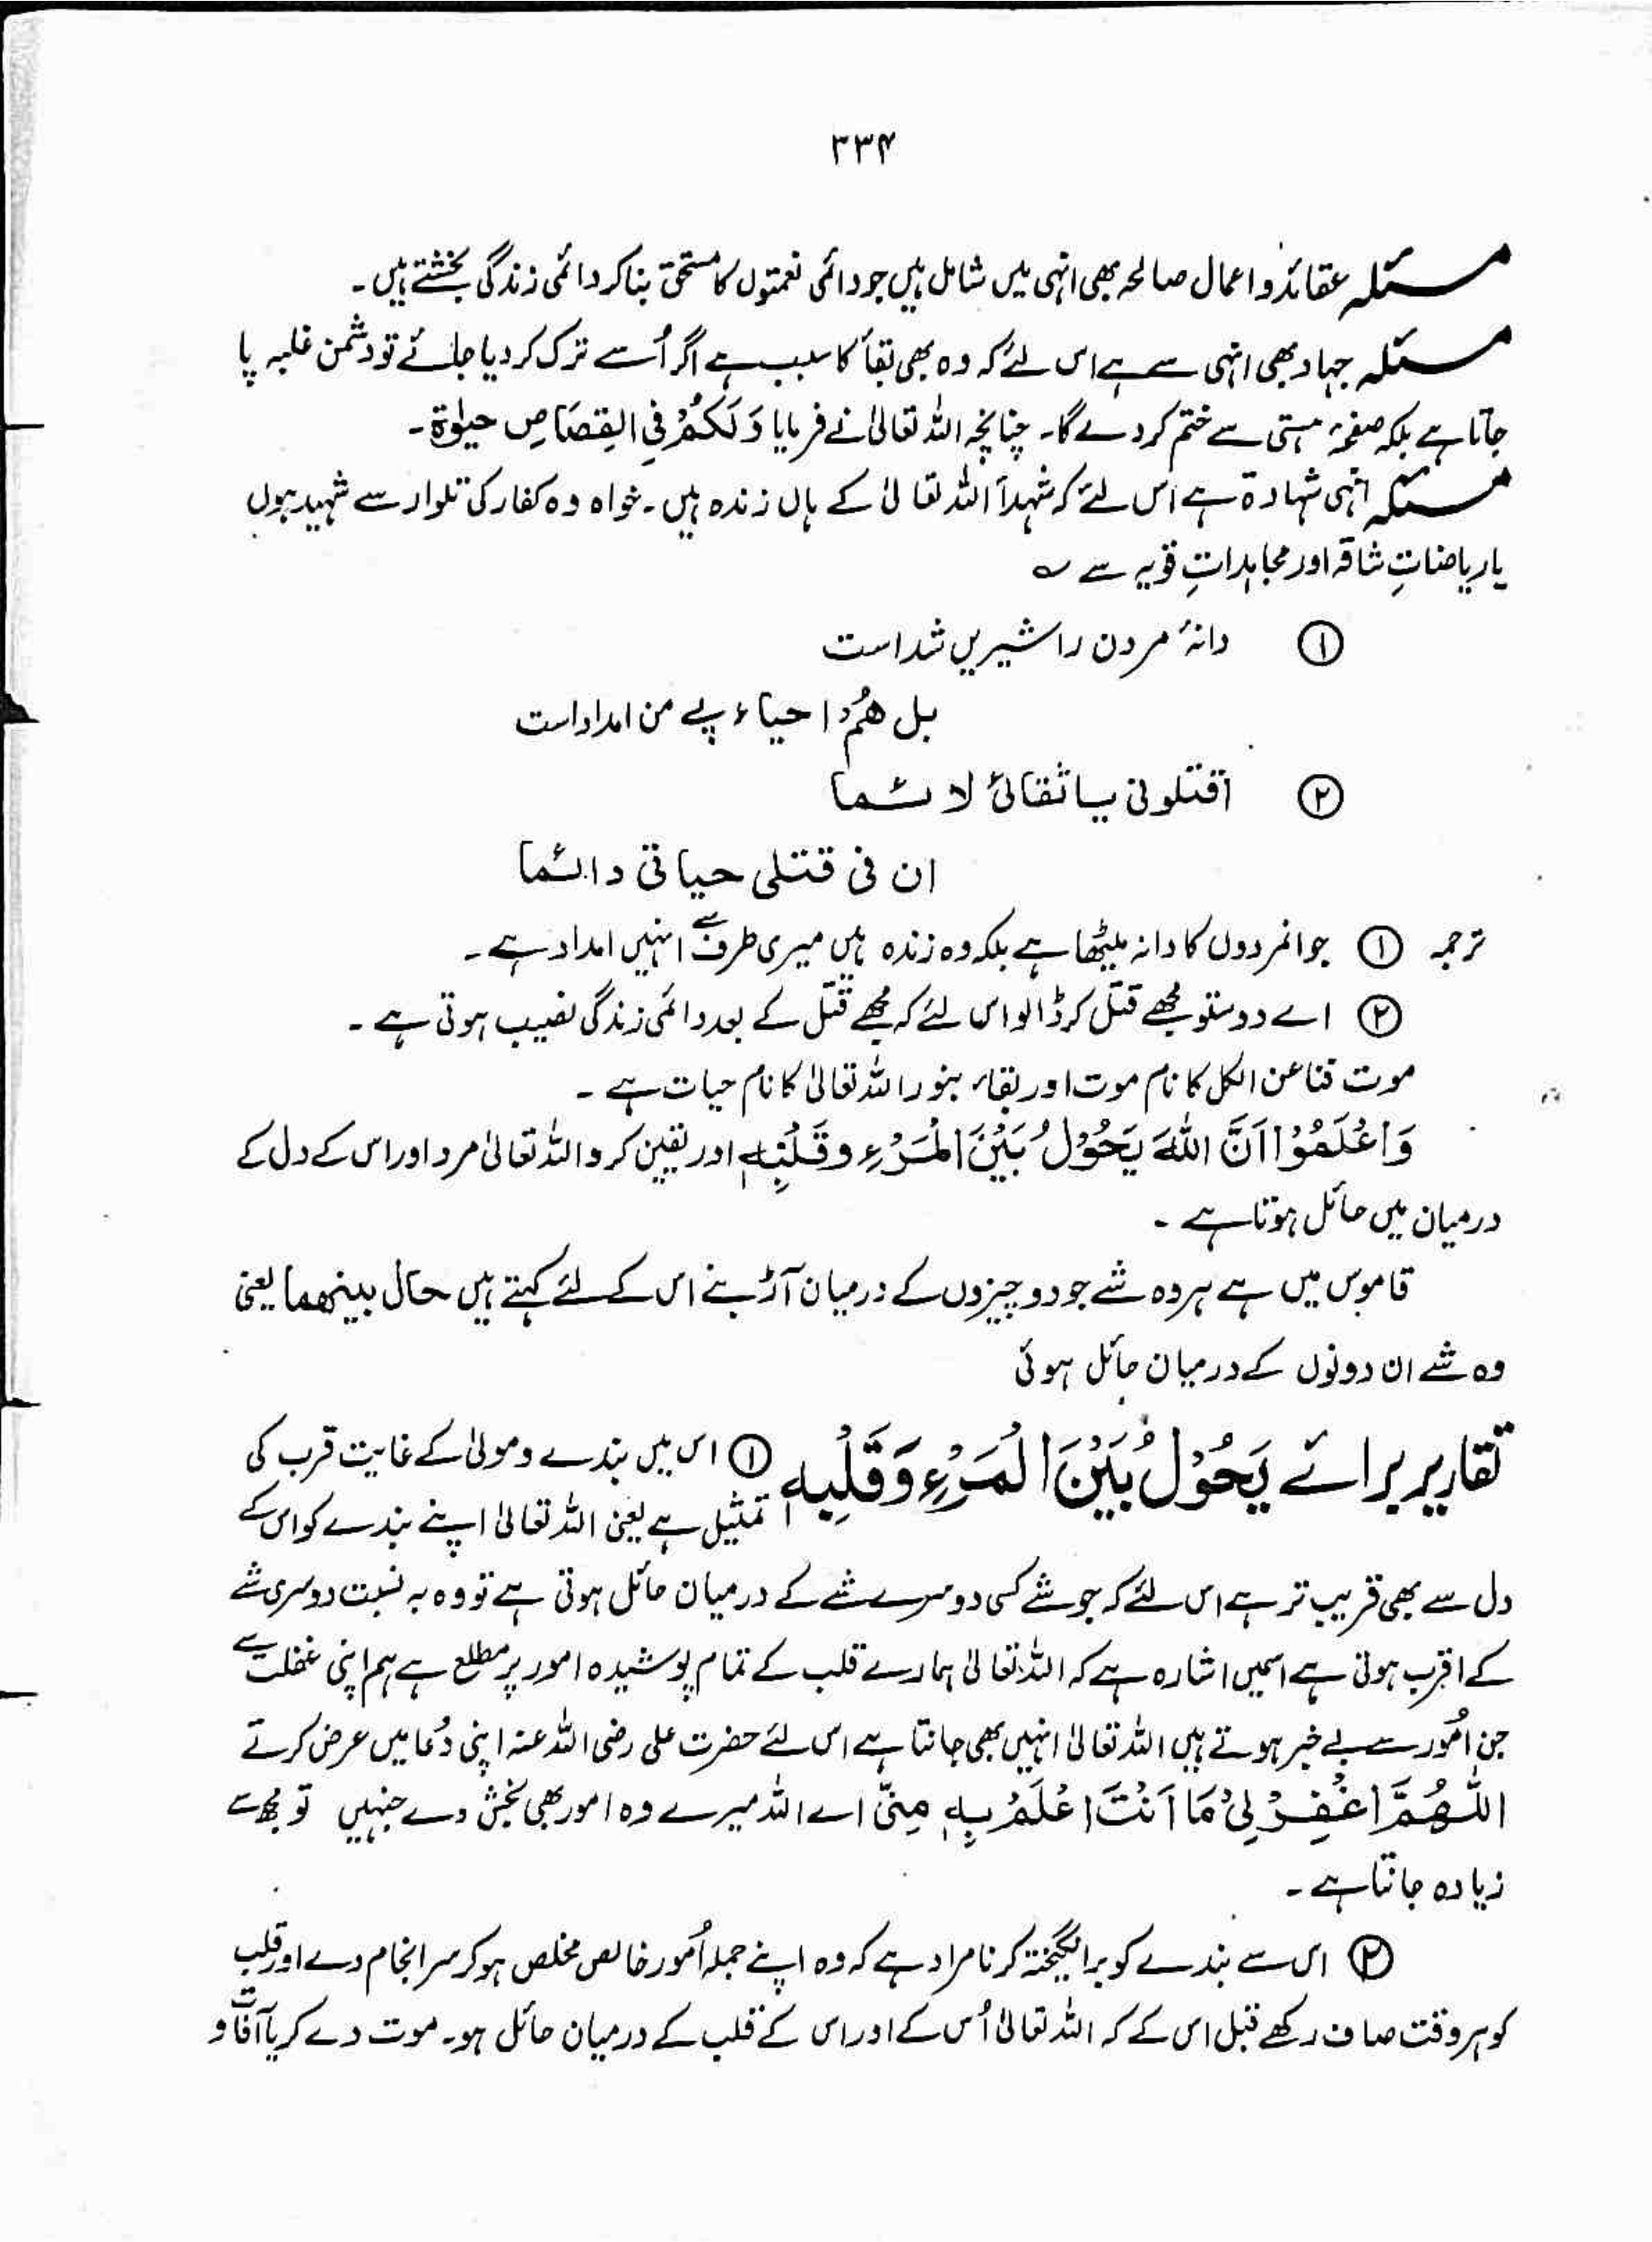 ۳۳۴
مسئلہ عقائد و اعمال صالحہ بھی انہی میں شامل ہیں جو دائمی نعمتوں کا مستحق بنا کر دائمی زندگی بخشتے ہیں۔
مسئلہ جہاد بھی انہی سے ہے اس لئے کہ وہ بھی بقأ کا سبب ہے اگر اُسے ترک کر دیا جائے تو دشمن غلبہ پا
جاتا ہے بلکہ صفحۂ ہستی سے ختم کر دے گا۔ چنانچہ اللہ تعالیٰ نے فرمایا وَلَكُمْ فِي القِصَاصِ حیٰوۃ۔
مسئلہ انہی شہادۃ ہے اس لئے کہ شہدأ اللہ تعالیٰ کے ہاں زندہ ہیں۔ خواہ وہ کفار کی تلوار سے شہید ہوں
یا ریاضاتِ شاقہ اور مجاہداتِ قویہ سے ؎
① دانۂ مردن را شیریں شد است
بل هُمْ احیاء پے من امداد است
② اقتلونی یا ثقاتی لائما
ان فی قتلی حیاتی دائما
ترجمہ ① جوانمردوں کا دانہ میٹھا ہے بلکہ وہ زندہ ہیں میری طرف سے انہیں امداد ہے۔
② اے دوستو مجھے قتل کر ڈالو اس لئے کہ مجھے قتل کے بعد دائمی زندگی نصیب ہوتی ہے۔
موت فنا عن الکل کا نام موت اور بقاء بنور اللہ تعالیٰ کا نام حیات ہے۔
وَاعْلَمُوْا اَنَّ اللّٰهَ يَحُوْلُ بَيْنَ الْمَرْءِ وَقَلْبِهٖ اور یقین کرو اللہ تعالیٰ مرد اور اس کے دل کے
درمیان میں حائل ہوتا ہے۔
قاموس میں ہے ہر وہ شے جو دو چیزوں کے درمیان آڑ بنے اس کے لئے کہتے ہیں حال بینهما یعنی
وہ شے ان دونوں کے درمیان حائل ہوئی
تقاریر برائے يَحُوْلُ بَيْنَ الْمَرْءِ وَقَلْبِهٖ ① اس میں بندے و مولیٰ کے غایت قرب کی
تمثیل ہے یعنی اللہ تعالیٰ اپنے بندے کو اس کے
دل سے بھی قریب تر ہے اس لئے کہ جو شے کسی دوسرے شے کے درمیان حائل ہوتی ہے تو وہ بہ نسبت دوسری شے
کے اقرب ہوتی ہے اسمیں اشارہ ہے کہ اللہ تعالیٰ ہمارے قلب کے تمام پوشیدہ امور پر مطلع ہے ہم اپنی غفلت سے
جن اُمور سے بے خبر ہوتے ہیں اللہ تعالیٰ انہیں بھی جانتا ہے اس لئے حضرت علی رضی اللہ عنہ اپنی دُعا میں عرض کرتے
اللّٰهُمَّ اغْفِرْ لِيْ مَا اَنْتَ اعْلَمُ بِهٖ مِنِّي اے اللہ میرے وہ امور بھی بخش دے جنہیں تو مجھ سے
زیادہ جانتا ہے۔
② اس سے بندے کو برانگیختہ کرنا مراد ہے کہ وہ اپنے جملہ اُمور خالص مخلص ہو کر سرانجام دے اور قلب
کو ہر وقت صاف رکھے قبل اس کے کہ اللہ تعالیٰ اُس کے اور اس کے قلب کے درمیان حائل ہو۔ موت دے کر یا آفات و